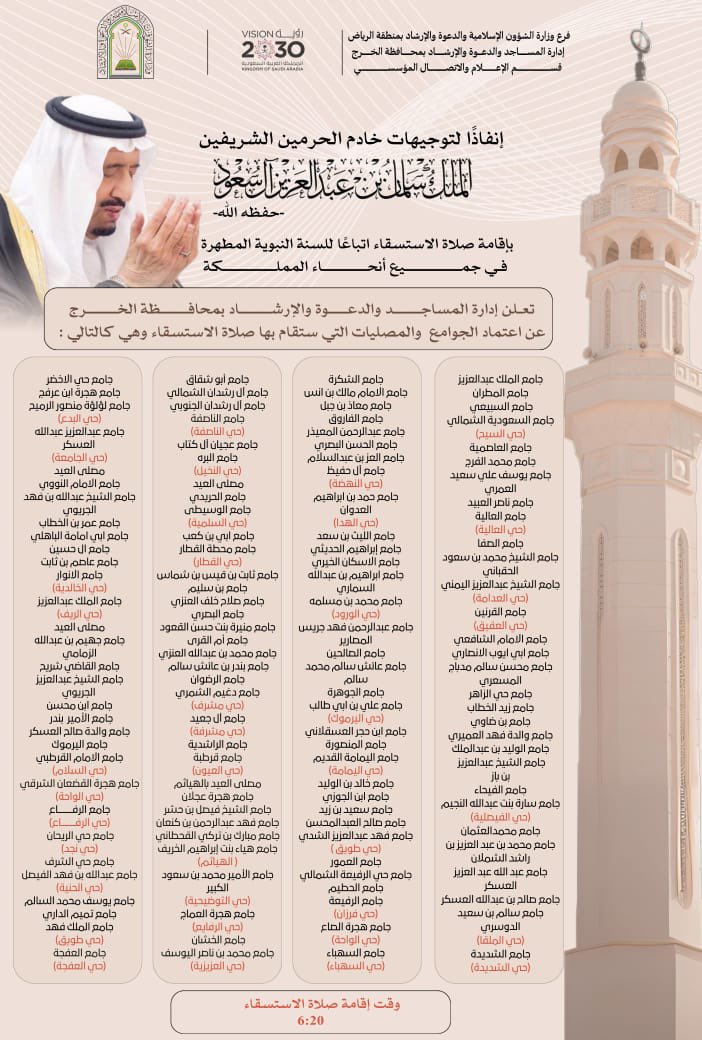 فرع وزارة الشؤون الإسلامية والدعوة والإرشاد بمنطقة الرياض
إدارة المساجد والدعوة والإرشاد بمحافظة الخرج
قسم الإعلام والاتصال المؤسسي
VISION رؤية
2030
المملكة العربية السعودية
KINGDOM OF SAUDI ARABIA
إنفاذًا لتوجيهات خادم الحرمين الشريفين
الملك سلمان بن عبدالعزيز آل سعود
-حفظه الله-
بإقامة صلاة الاستسقاء اتباعًا للسنة النبوية المطهرة
في جميع أنحاء المملكة
تعلن إدارة المساجد والدعوة والإرشاد بمحافظة الخرج
عن اعتماد الجوامع والمصليات التي ستقام بها صلاة الاستسقاء وهي كالتالي :
جامع الملك عبدالعزيز
جامع المطران
جامع السبيعي
جامع السعودية الشمالي
(حي السيح)
جامع العاصمية
جامع محمد الفرج
جامع يوسف علي سعيد
العمري
جامع ناصر العبيد
جامع العالية
(حي العالية)
جامع الصفا
جامع الشيخ محمد بن سعود
الحقباني
جامع الشيخ عبدالعزيز اليمني
(حي العدامة)
جامع القرنين
(حي العفيق)
جامع الامام الشافعي
جامع ابي ايوب الانصاري
جامع محسن سالم مدباج
المسعري
جامع حي الزاهر
جامع زيد الخطاب
جامع بن ضاوي
جامع والدة فهد العميري
جامع الوليد بن عبدالملك
جامع الشيخ عبدالعزيز
بن باز
جامع الفيحاء
جامع سارة بنت عبدالله النجيم
(حي الفيصلية)
جامع محمدالعثمان
جامع محمد بن عبد العزيز بن
راشد الشملان
جامع عبد الله عبد العزيز
العسكر
جامع صالح بن عبدالله العسكر
جامع سالم بن سعيد
الدوسري
(حي الملقا)
جامع الشديدة
(حي الشديدة)
جامع الشكرة
جامع الامام مالك بن انس
جامع معاذ بن جبل
جامع الفاروق
جامع عبدالرحمن المعيذر
جامع الحسن البصري
جامع العز بن عبدالسلام
جامع آل حفيظ
(حي النهضة)
جامع حمد بن ابراهيم
العدوان
(حي الهدا)
جامع الليث بن سعد
جامع إبراهيم الحديثي
جامع الاسكان الخيري
جامع ابراهيم بن عبدالله
السماري
جامع محمد بن مسلمه
(حي الورود)
جامع عبدالرحمن فهد جريس
المصارير
جامع الصالحين
جامع عائش سالم محمد
سالم
جامع الجوهرة
جامع علي بن ابي طالب
(حي اليرموك)
جامع ابن حجر العسقلاني
جامع المنصورة
جامع اليمامة القديم
(حي اليمامة)
جامع خالد بن الوليد
جامع ابن الجوزي
جامع سعيد بن زيد
جامع صالح العبدالمحسن
جامع فهد عبدالعزيز الشدي
(حي طويق )
جامع العمور
جامع حي الرفيعة الشمالي
جامع الحطيم
جامع الرفيعة
(حي فرزان)
جامع هجرة الصاع
(حي الواحة)
جامع السهباء
(حي السهباء)
جامع أبو شقاق
جامع آل رشدان الشمالي
جامع آل رشدان الجنوبي
جامع الناصفة
(حي الناصفة)
جامع عجيان آل كتاب
جامع البره
(حي النخيل)
مصلى العيد
جامع الحريدي
جامع الوسيطى
(حي السلمية)
جامع ابي بن كعب
جامع محطة القطار
(حي القطار)
جامع ثابت بن قيس بن شماس
جامع بن سليم
جامع صلاح خلف العنزي
جامع البصري
جامع منيرة بنت حسن القعود
جامع أم القرى
جامع محمد بن عبدالله العنزي
جامع بندر بن عائش سالم
جامع الرضوان
جامع دغيم الشمري
(حي مشرف)
جامع آل جعيد
(حي مشرفة)
جامع الراشدية
جامع قرطبة
(حي العيون)
مصلى العيد بالهياثم
جامع هجرة عجلان
جامع الشيخ فيصل بن حشر
جامع فهد عبدالرحمن بن كنعان
جامع مبارك بن تركي القحطاني
جامع هياء بنت إبراهيم الخريف
( الهياثم)
جامع الأمير محمد بن سعود
الكبير
(حي التوضيحية)
جامع هجرة العماج
(حي الرفايع)
جامع الخشان
جامع محمد بن ناصر اليوسف
(حي العزيزية)
جامع حي الاخضر
جامع هجرة ابن عرفج
جامع لؤلؤة منصور الرميح
(حي البدع)
جامع عبدالعزيز عبدالله
العسكر
(حي الجامعة)
مصلى العيد
جامع الامام النووي
جامع الشيخ عبدالله بن فهد
الجريوي
جامع عمر بن الخطاب
جامع ابي امامة الباهلي
جامع ال حسين
جامع عاصم بن ثابت
جامع الانوار
(حي الخالدية)
جامع الملك عبدالعزيز
(حي الريف)
مصلى العيد
جامع جهيم بن عبدالله
الزمامي
جامع القاضي شريح
جامع الشيخ عبدالعزيز
الجريوي
جامع ابن محسن
جامع الأمير بندر
جامع والدة صالح العسكر
جامع اليرموك
جامع الامام القرطبي
(حي السلام)
جامع هجرة القضعان الشرقي
(حي الواحة)
جامع الرفاع
(حي الرفاع)
جامع حي الريحان
(حي نجد)
جامع حي الشرف
جامع عبدالله بن فهد الفيصل
(حي الحنية)
جامع يوسف محمد السالم
جامع تميم الداري
جامع الملك فهد
(حي طويق)
جامع العفجة
(حي العفجة)
وقت إقامة صلاة الاستسقاء
6:20